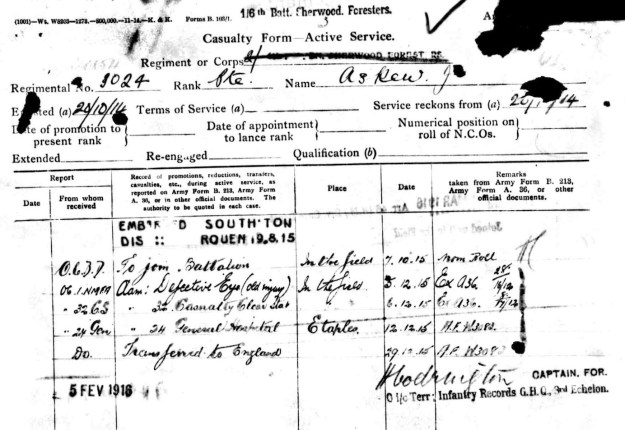 1/6th Batt. Sherwood Foresters.
(1001)—Ws. W8203—1273.—500,000.—11-14.—K. & K. Forms B. 103/1.
Casualty Form—Active Service.
Regiment or Corps
Regimental No. 3024 Rank Pte. Name Askew. J
Enlisted (a) 20/10/14 Terms of Service (a) Service reckons from (a) 20/10/14
Date of promotion to present rank
Date of appointment to lance rank
Numerical position on roll of N.C.Os.
Extended Re-engaged Qualification (b)
Report
Date
From whom received
Record of promotions, reductions, transfers,
casualties, etc., during active service, as
reported on Army Form B. 213, Army Form
A. 36, or in other official documents. The
authority to be quoted in each case.
Place
Date
Remarks
taken from Army Form B. 213,
Army Form A. 36, or other
official documents.
EMB RED SOUTH'TON
DIS :: ROUEN 19.8.15
To join Battalion In the field 7.10.15 Nom Roll
Adm: Defective Eye (old injury) In the field 5.12.15 Ex A36
" 32 CS " 32 Casualty Clear Stat 6.12.15 Ex A36
" 24 Gen " 24 General Hospital Etaples 12.12.15 A.F. W3083.
Do. Transferred to England 29.12.15 A.F. W3083
5 FEV 1916
CAPTAIN, FOR.
O i/c Terr: Infantry Records G.H.Q., 3rd Echelon.